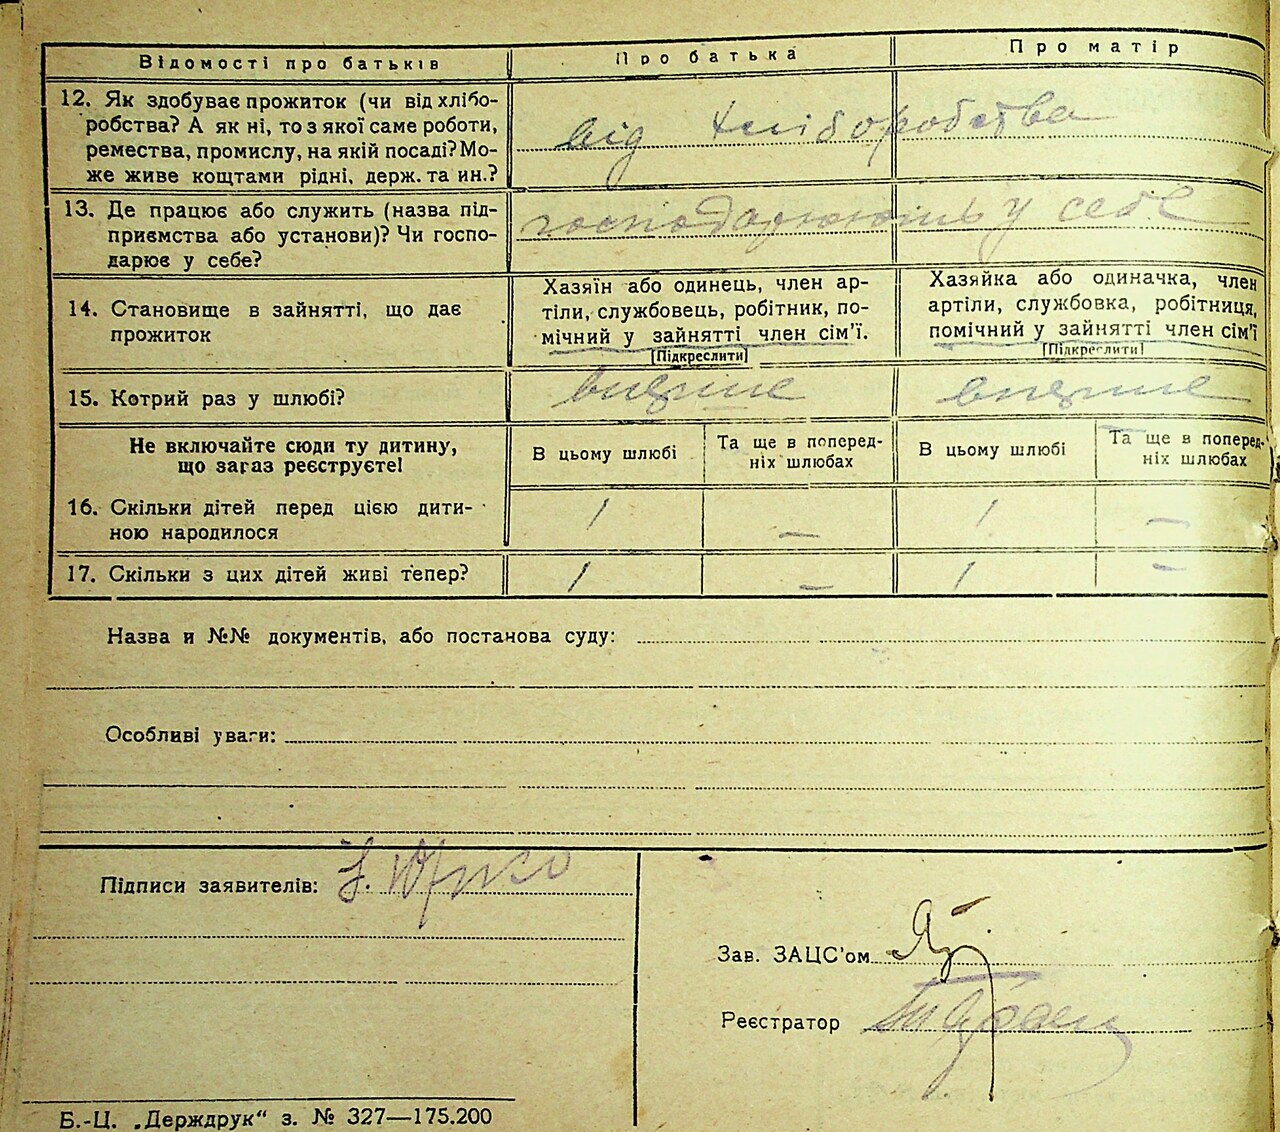 Відомості про батьків Про батька Про матір
12. Як здобуває прожиток (чи від хлібо-
робства? А як ні, то з якої саме роботи,
ремества, промислу, на якій посаді? Мо-
же живе коштами рідні, держ. та ин.?
від хліборобства
13. Де працює або служить (назва під-
приємства або установи)? Чи госпо-
дарює у себе?
господарюють у себе
14. Становище в зайнятті, що дає
прожиток
Хазяїн або одинець, член ар-
тіли, службовець, робітник, по-
мічний у зайнятті член сім'ї.
[Підкреслити]
Хазяйка або одиначка, член
артіли, службовка, робітниця,
помічний у зайнятті член сім'ї
[Підкреслити]
15. Котрий раз у шлюбі? вперше вперше
Не включайте сюди ту дитину,
що зараз реєструєте!
В цьому шлюбі
Та ще в поперед-
ніх шлюбах
В цьому шлюбі
Та ще в поперед-
ніх шлюбах
16. Скільки дітей перед цією дити-
ною народилося
1 — 1 —
17. Скільки з цих дітей живі тепер? 1 — 1 —
Назва и №№ документів, або постанова суду:
Особливі уваги:
Підписи заявителів:
Зав. ЗАЦС'ом
Реєстратор
Б.-Ц. „Держдрук“ з. № 327—175.200